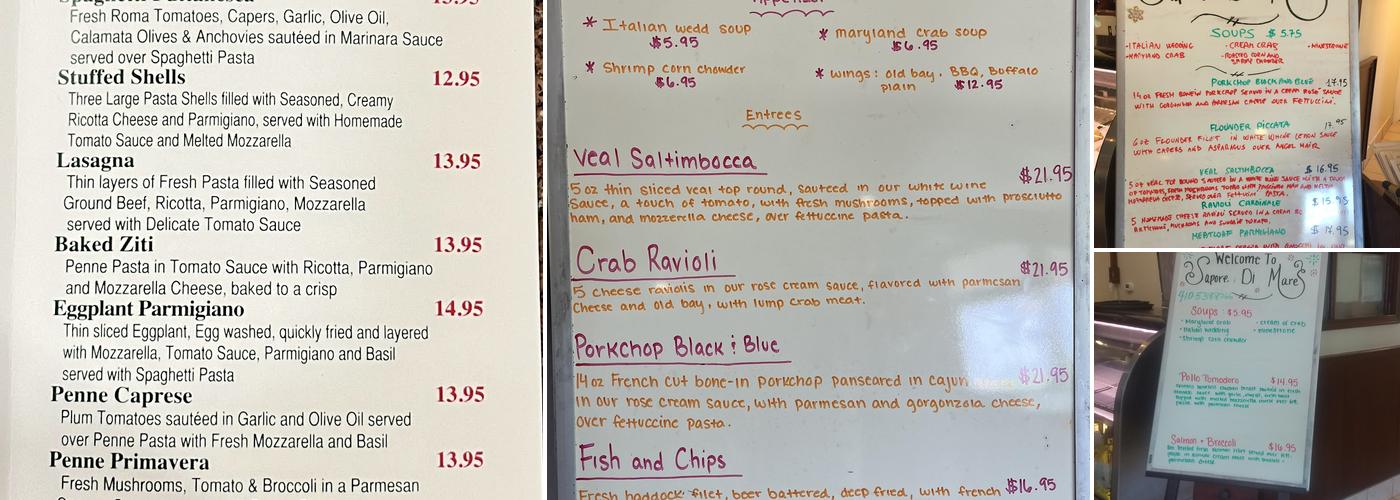 Spaghetti Puttanesca 13.95
Fresh Roma Tomatoes, Capers, Garlic, Olive Oil,
Calamata Olives & Anchovies sautéed in Marinara Sauce
served over Spaghetti Pasta
Stuffed Shells 12.95
Three Large Pasta Shells filled with Seasoned, Creamy
Ricotta Cheese and Parmigiano, served with Homemade
Tomato Sauce and Melted Mozzarella
Lasagna 13.95
Thin layers of Fresh Pasta filled with Seasoned
Ground Beef, Ricotta, Parmigiano, Mozzarella
served with Delicate Tomato Sauce
Baked Ziti 13.95
Penne Pasta in Tomato Sauce with Ricotta, Parmigiano
and Mozzarella Cheese, baked to a crisp
Eggplant Parmigiano 14.95
Thin sliced Eggplant, Egg washed, quickly fried and layered
with Mozzarella, Tomato Sauce, Parmigiano and Basil
served with Spaghetti Pasta
Penne Caprese 13.95
Plum Tomatoes sautéed in Garlic and Olive Oil served
over Penne Pasta with Fresh Mozzarella and Basil
Penne Primavera 13.95
Fresh Mushrooms, Tomato & Broccoli in a Parmesan
* Italian wedd soup * maryland crab soup
$5.95 $6.95
* Shrimp corn chowder * wings: old bay, BBQ, Buffalo
$6.95 plain $12.95
Entrees
Veal Saltimbocca $21.95
5 oz thin sliced veal top round, sauteed in our white wine
sauce, a touch of tomato, with fresh mushrooms, topped with prosciutto
ham, and mozzerella cheese, over fettuccine pasta.
Crab Ravioli $21.95
5 cheese raviolis in our rose cream sauce, flavored with parmesan
cheese and old bay, with lump crab meat.
Porkchop Black & Blue
14 oz French cut bone-in porkchop panseared in cajun $21.95
in our rose cream sauce, with parmesan and gorgonzola cheese,
over fettuccine pasta.
Fish and Chips
Fresh haddock filet, beer battered, deep fried, with french $16.95
SOUPS $5.75
-ITALIAN WEDDING -CREAM CRAB -MINESTRONE
-MARYLAND CRAB -ROASTED CORN AND
CHOWDER
PORKCHOP BLACK AND BLUE 17.95
14 OZ FRESH BONEIN PORKCHOP SERVED IN A CREAM ROSE SAUCE
WITH GORGONZOLA AND PARMESAN CHEESE OVER FETTUCCINI.
FLOUNDER PICCATA 17.95
6 OZ FLOUNDER FILET IN WHITE WINE LEMON SAUCE
WITH CAPERS AND ASPARAGUS OVER ANGEL HAIR
VEAL SALTIMBOCCA $16.95
5 OZ VEAL TOP ROUND SAUTEED IN A WHITE WINE SAUCE WITH A TOUCH
OF TOMATOES, FRESH MUSHROOMS
RAVIOLI CARDINALE $15.95
5 HOMEMADE CHEESE RAVIOLI SERVED IN A CREAM
ARTICHOKES, MUSHROOMS AND SUNDRIED TOMATO.
MEATLOAF PARMIGIANO $17.95
Welcome To
Sapore Di Mare
Soups: $5.95
• Maryland crab • cream of crab
• Italian wedding • minestrone
• Shrimp corn chowder
Pollo Pomodoro $14.95
Salmon + Broccoli $16.95